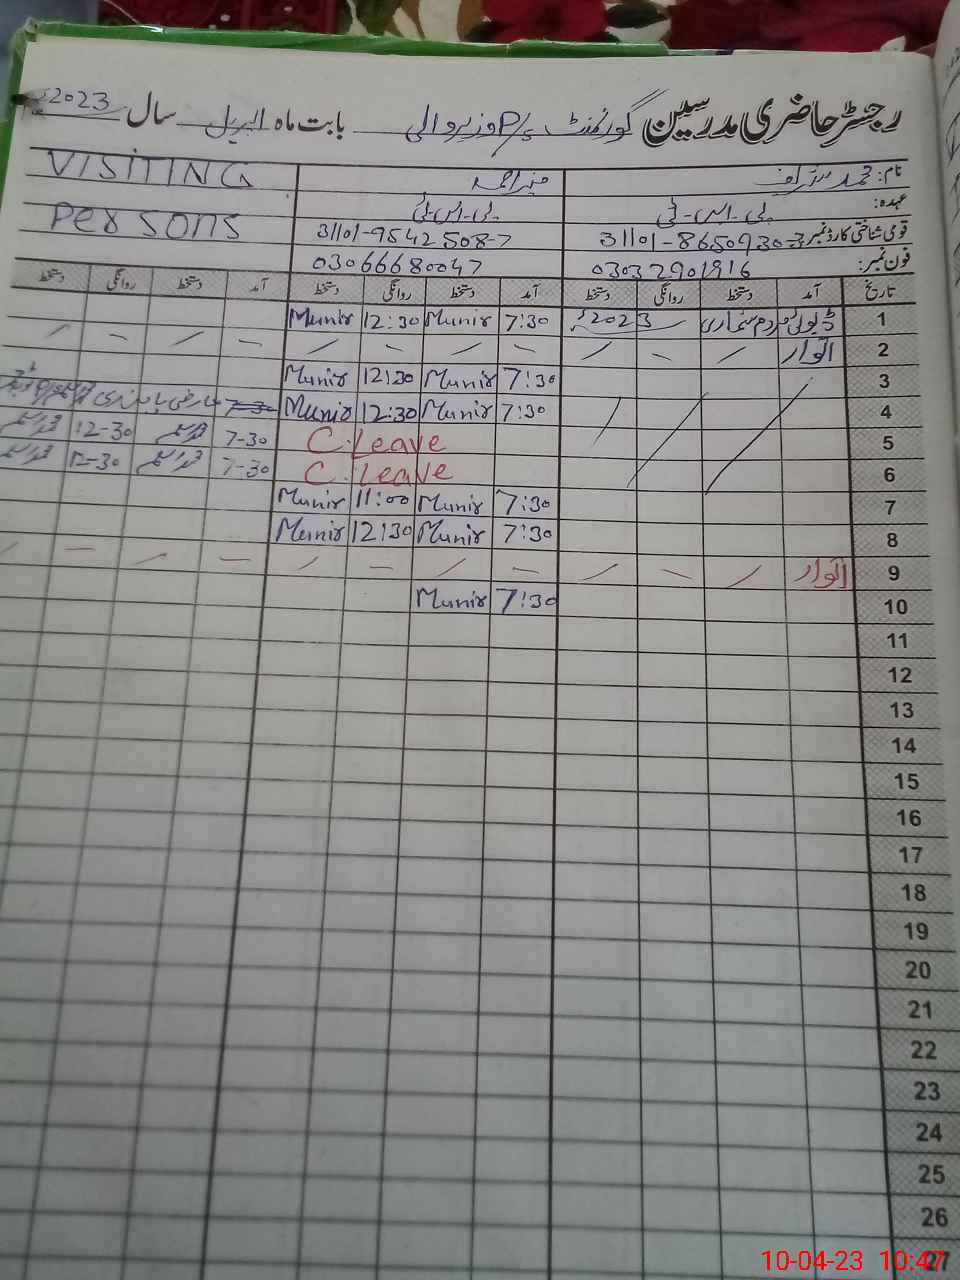 رجسٹر حاضری مدرسین گورنمنٹ P/S وزیر والی بابت ماہ اپریل سال 2023ء
نام: محمد منیر احمد VISITING
عہدہ: پی-ایس-ٹی پی-ایس-ٹی PERSONS
قومی شناختی کارڈ نمبر: 31101-8650930-3 31101-9542508-7
فون نمبر: 03032901916 03066680047
تاریخ آمد دستخط روانگی دستخط آمد دستخط روانگی دستخط آمد دستخط روانگی دستخط
1 ڈیوٹی مردم شماری 2023ء 7:30 Munir 12:30 Munir
2 اتوار / — / — / — / — / — /
3 7:30 Munir 12:30 Munir
4 7:30 Munir 12:30 Munir 7-30 عارضی
5 C.Leave 7-30 12-30
6 C.Leave 7-30 12-30
7 7:30 Munir 11:00 Munir
8 7:30 Munir 12:30 Munir
9 اتوار / — / — / — / — / — /
10 7:30 Munir
11
12
13
14
15
16
17
18
19
20
21
22
23
24
25
26
27
10-04-23 10:47